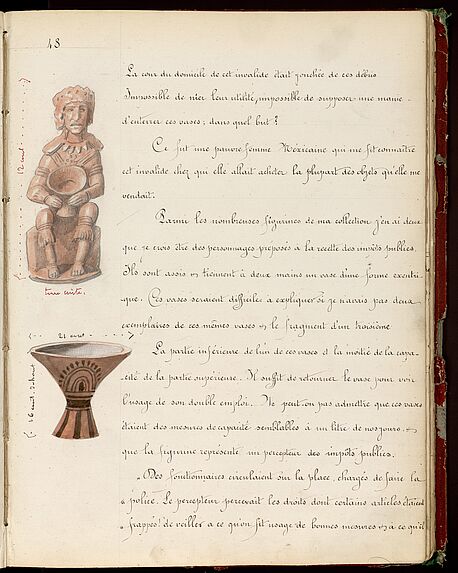 48
La cour du domicile de cet invalide était jonchée de ces débris
Impossible de nier leur utilité, impossible de supposer une manie
d'enterrer ces vases ; dans quel but ?
Ce fut une pauvre femme Mexicaine qui me fit connaître
cet invalide chez qui elle allait acheter la plupart des objets qu'elle me
vendait.
Parmi les nombreuses figurines de ma collection j'en ai deux
que je crois être des personnages préposés à la recette des impôts publics.
Ils sont assis et tiennent à deux mains un vase d'une forme excentri
que. Ces vases seraient difficiles à expliquer si je n'avais pas deux
exemplaires de ces mêmes vases et le fragment d'un troisième
La partie inférieure de l'un de ces vases est la moitié de la capa
cité de la partie supérieure. Il suffit de retourner le vase pour voir
l'usage de son double emploi. Ne peut-on pas admettre que ces vases
étaient des mesures de capacité semblables à un litre de nos jours, et
que la figurine représente un percepteur des impôts publics.
« Des fonctionnaires circulaient sur la place, chargés de faire la
« police. Le percepteur percevait les droits dont certains articles étaient
« frappés ; de veiller à ce qu'on fit usage de bonnes mesures et à ce qu'il
12 cent.
terre cuite.
21 cent
16 cent.